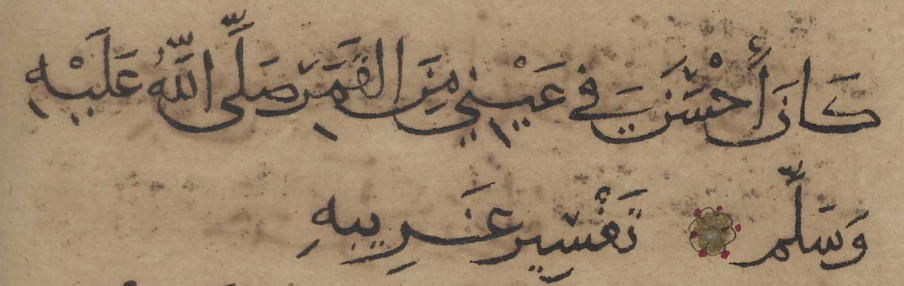 كَانَ أَحْسَنَ فِي عَيْنِي مِنَ الْقَمَرِ صَلَّى اللَّهُ عَلَيْهِ
وَسَلَّم تَفْسِير غَرِيبِهِ